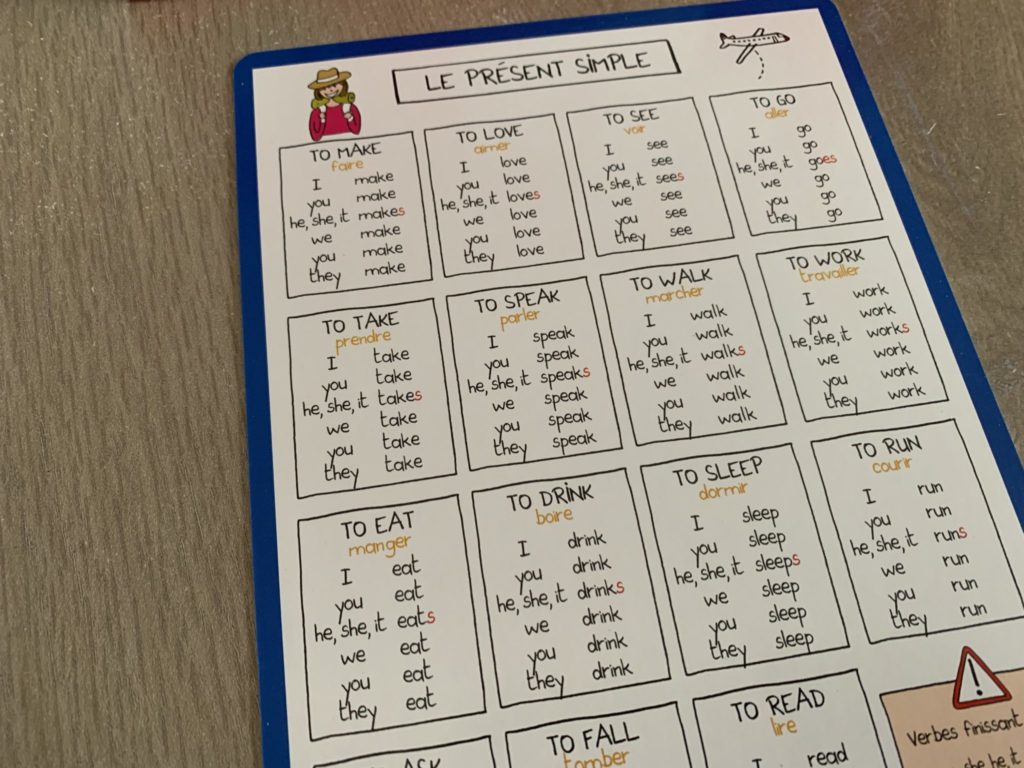 LE PRÉSENT SIMPLE
TO MAKE
faire
I make
you make
he, she, it makes
we make
you make
they make
TO LOVE
aimer
I love
you love
he, she, it loves
we love
you love
they love
TO SEE
voir
I see
you see
he, she, it sees
we see
you see
they see
TO GO
aller
I go
you go
he, she, it goes
we go
you go
they go
TO TAKE
prendre
I take
you take
he, she, it takes
we take
you take
they take
TO SPEAK
parler
I speak
you speak
he, she, it speaks
we speak
you speak
they speak
TO WALK
marcher
I walk
you walk
he, she, it walks
we walk
you walk
they walk
TO WORK
travailler
I work
you work
he, she, it works
we work
you work
they work
TO EAT
manger
I eat
you eat
he, she, it eats
we eat
you eat
they eat
TO DRINK
boire
I drink
you drink
he, she, it drinks
we drink
you drink
they drink
TO SLEEP
dormir
I sleep
you sleep
he, she, it sleeps
we sleep
you sleep
they sleep
TO RUN
courir
I run
you run
he, she, it runs
we run
you run
they run
TO FALL
tomber
TO READ
lire
I read
Verbes finissant
she, he, it